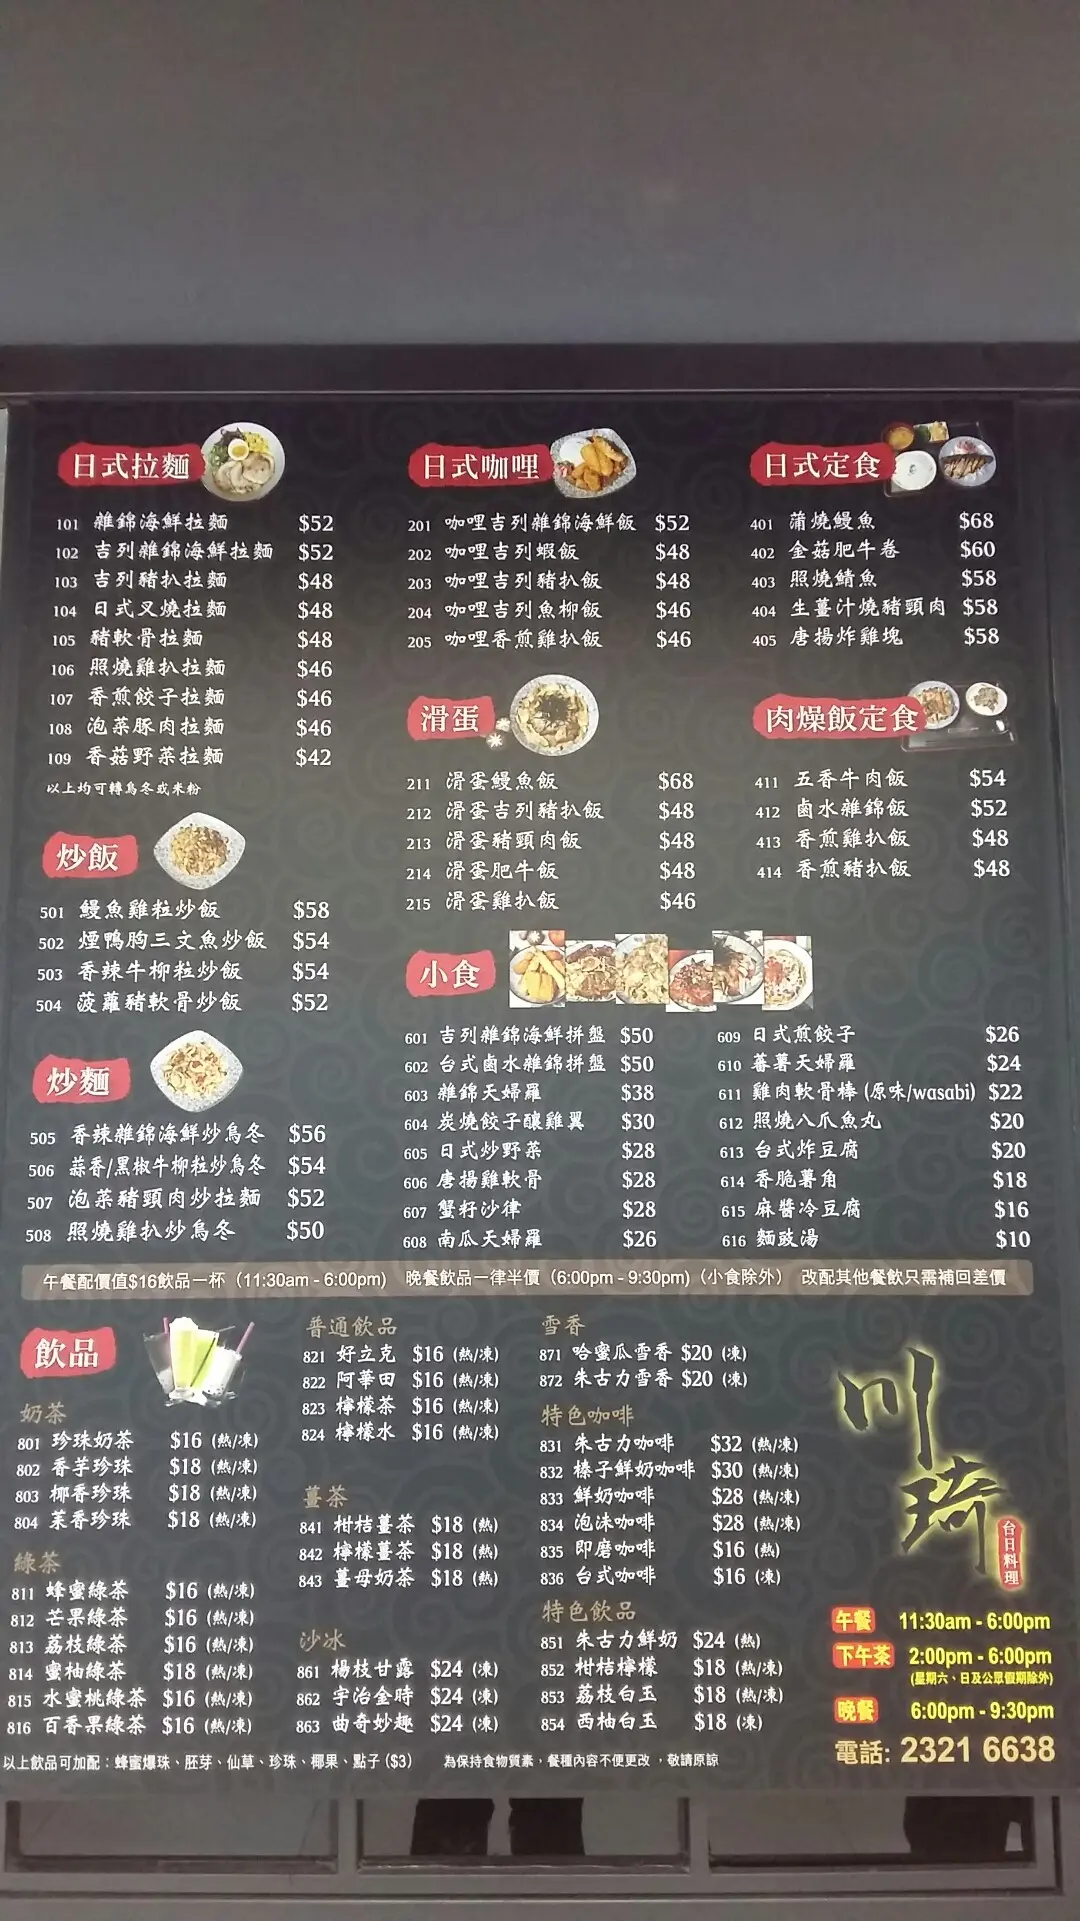 日式拉麵
101 雜錦海鮮拉麵 $52
102 吉列雜錦海鮮拉麵 $52
103 吉列豬扒拉麵 $48
104 日式叉燒拉麵 $48
105 豬軟骨拉麵 $48
106 照燒雞扒拉麵 $46
107 香煎餃子拉麵 $46
108 泡菜豚肉拉麵 $46
109 香菇野菜拉麵 $42
以上均可轉烏冬或米粉
炒飯
501 鰻魚雞粒炒飯 $58
502 煙鴨胸三文魚炒飯 $54
503 香辣牛柳粒炒飯 $54
504 菠蘿豬軟骨炒飯 $52
炒麵
505 香辣雜錦海鮮炒烏冬 $56
506 蒜香/黑椒牛柳粒炒烏冬 $54
507 泡菜豬頸肉炒拉麵 $52
508 照燒雞扒炒烏冬 $50
日式咖哩
201 咖哩吉列雜錦海鮮飯 $52
202 咖哩吉列蝦飯 $48
203 咖哩吉列豬扒飯 $48
204 咖哩吉列魚柳飯 $46
205 咖哩香煎雞扒飯 $46
滑蛋
211 滑蛋鰻魚飯 $68
212 滑蛋吉列豬扒飯 $48
213 滑蛋豬頸肉飯 $48
214 滑蛋肥牛飯 $48
215 滑蛋雞扒飯 $46
日式定食
401 蒲燒鰻魚 $68
402 金菇肥牛卷 $60
403 照燒鯖魚 $58
404 生薑汁燒豬頸肉 $58
405 唐揚炸雞塊 $58
肉燥飯定食
411 五香牛肉飯 $54
412 鹵水雜錦飯 $52
413 香煎雞扒飯 $48
414 香煎豬扒飯 $48
小食
601 吉列雜錦海鮮拼盤 $50
602 台式鹵水雜錦拼盤 $50
603 雜錦天婦羅 $38
604 炭燒餃子釀雞翼 $30
605 日式炒野菜 $28
606 唐揚雞軟骨 $28
607 蟹籽沙律 $28
608 南瓜天婦羅 $26
609 日式煎餃子 $26
610 蕃薯天婦羅 $24
611 雞肉軟骨棒 (原味/wasabi) $22
612 照燒八爪魚丸 $20
613 台式炸豆腐 $20
614 香脆薯角 $18
615 麻醬冷豆腐 $16
616 麵豉湯 $10
午餐配價值$16飲品一杯（11:30am - 6:00pm） 晚餐飲品一律半價（6:00pm - 9:30pm）（小食除外） 改配其他餐飲只需補回差價
飲品
奶茶
801 珍珠奶茶 $16 (熱/凍)
802 香芋珍珠 $18 (熱/凍)
803 椰香珍珠 $18 (熱/凍)
804 茉香珍珠 $18 (熱/凍)
綠茶
811 蜂蜜綠茶 $16 (熱/凍)
812 芒果綠茶 $16 (熱/凍)
813 荔枝綠茶 $16 (熱/凍)
814 蜜柚綠茶 $18 (熱/凍)
815 水蜜桃綠茶 $16 (熱/凍)
816 百香果綠茶 $16 (熱/凍)
普通飲品
821 好立克 $16 (熱/凍)
822 阿華田 $16 (熱/凍)
823 檸檬茶 $16 (熱/凍)
824 檸檬水 $16 (熱/凍)
薑茶
841 柑桔薑茶 $18 (熱)
842 檸檬薑茶 $18 (熱)
843 薑母奶茶 $18 (熱)
沙冰
861 楊枝甘露 $24 (凍)
862 宇治金時 $24 (凍)
863 曲奇妙趣 $24 (凍)
雪香
871 哈蜜瓜雪香 $20 (凍)
872 朱古力雪香 $20 (凍)
特色咖啡
831 朱古力咖啡 $32 (熱/凍)
832 榛子鮮奶咖啡 $30 (熱/凍)
833 鮮奶咖啡 $28 (熱/凍)
834 泡沫咖啡 $28 (熱/凍)
835 即磨咖啡 $16 (熱)
836 台式咖啡 $16 (凍)
特色飲品
851 朱古力鮮奶 $24 (熱)
852 柑桔檸檬 $18 (熱/凍)
853 荔枝白玉 $18 (熱/凍)
854 西柚白玉 $18 (凍)
以上飲品可加配：蜂蜜爆珠、胚芽、仙草、珍珠、椰果、點子 ($3)
為保持食物質素，餐種內容不便更改，敬請原諒
川琦
台日料理
午餐 11:30am - 6:00pm
下午茶 2:00pm - 6:00pm
(星期六、日及公眾假期除外)
晚餐 6:00pm - 9:30pm
電話: 2321 6638